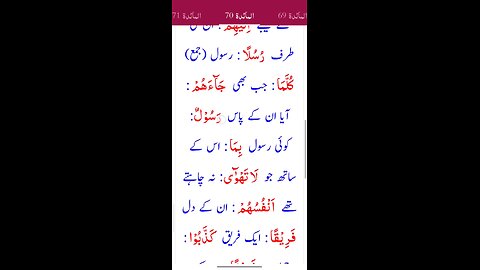 المآئدۃ 69 المآئدۃ 70 المآئدۃ 71
اِلَيْهِمْ : ان کی
طرف رُسُلًا : رسول (جمع)
كُلَّمَا : جب بھی جَآءَهُمْ :
آیا ان کے پاس رَسُوْلٌ :
کوئی رسول بِمَا : اس کے
ساتھ جو لَا تَهْوٰٓى : نہ چاہتے
تھے اَنْفُسُهُمْ : ان کے دل
فَرِيْقًا : ایک فریق كَذَّبُوْا :